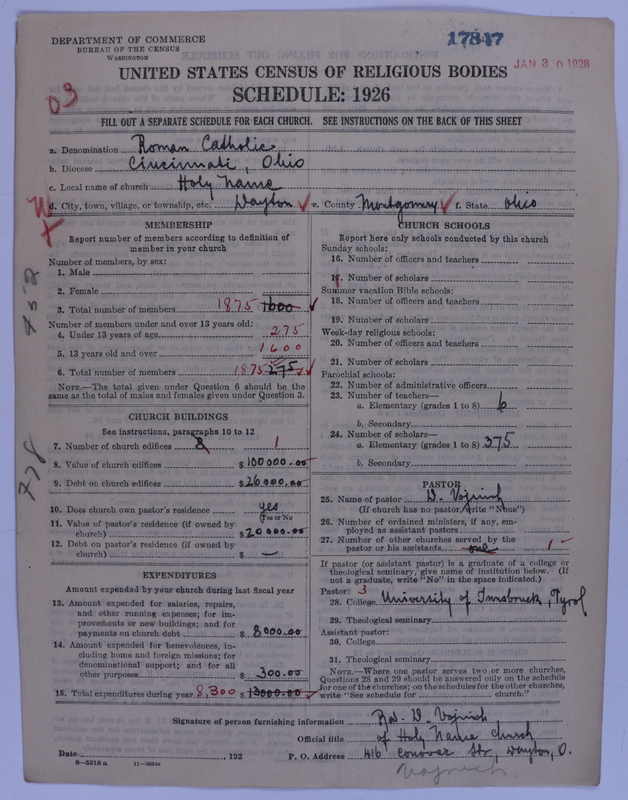 DEPARTMENT OF COMMERCE
BUREAU OF THE CENSUS
WASHINGTON
17847
JAN 30 1928
UNITED STATES CENSUS OF RELIGIOUS BODIES
SCHEDULE: 1926
03
FILL OUT A SEPARATE SCHEDULE FOR EACH CHURCH. SEE INSTRUCTIONS ON THE BACK OF THIS SHEET
a. Denomination Roman Catholic
b. Diocese Cincinnati, Ohio
c. Local name of church Holy Name
d. City, town, village, or township, etc. Dayton e. County Montgomery f. State Ohio
MEMBERSHIP
Report number of members according to definition of
member in your church
Number of members, by sex:
1. Male
2. Female
3. Total number of members 1875 1600
Number of members under and over 13 years old:
4. Under 13 years of age 275
5. 13 years old and over 1600
6. Total number of members 1875 275
NOTE.—The total given under Question 6 should be the
same as the total of males and females given under Question 3.
CHURCH BUILDINGS
See instructions, paragraphs 10 to 12
7. Number of church edifices 8 1
8. Value of church edifices $100000.00
9. Debt on church edifices $26000.00
10. Does church own pastor's residence yes
(Yes or No
11. Value of pastor's residence (if owned by
church) $20000.00
12. Debt on pastor's residence (if owned by
church) $ —
EXPENDITURES
Amount expended by your church during last fiscal year
13. Amount expended for salaries, repairs,
and other running expenses; for im-
provements or new buildings; and for
payments on church debt $8000.00
14. Amount expended for benevolences, in-
cluding home and foreign missions; for
denominational support; and for all
other purposes $300.00
15. Total expenditures during year 8,300 $13000.00
CHURCH SCHOOLS
Report here only schools conducted by this church
Sunday schools:
16. Number of officers and teachers
17. Number of scholars
Summer vacation Bible schools:
18. Number of officers and teachers
19. Number of scholars
Week-day religious schools:
20. Number of officers and teachers
21. Number of scholars
Parochial schools:
22. Number of administrative officers
23. Number of teachers—
a. Elementary (grades 1 to 8) 6
b. Secondary
24. Number of scholars—
a. Elementary (grades 1 to 8) 375
b. Secondary
PASTOR
25. Name of pastor D. Vojnich
(If church has no pastor, write "None")
26. Number of ordained ministers, if any, em-
ployed as assistant pastors
27. Number of other churches served by the
pastor or his assistants one 1
If pastor (or assistant pastor) is a graduate of a college or
theological seminary, give name of institution below. (If
not a graduate, write "No" in the space indicated.)
Pastor: 3
28. College University of Innsbruck, Tyrol
29. Theological seminary
Assistant pastor:
30. College
31. Theological seminary
NOTE.—Where one pastor serves two or more churches,
Questions 28 and 29 should be answered only on the schedule
for one of the churches; on the schedules for the other churches,
write "See schedule for church."
Signature of person furnishing information Rev. D. Vojnich
Official title of Holy Name Church
Date , 192 P. O. Address 416 Conover Str, Dayton, O.
8—5518 a
Vojnich.